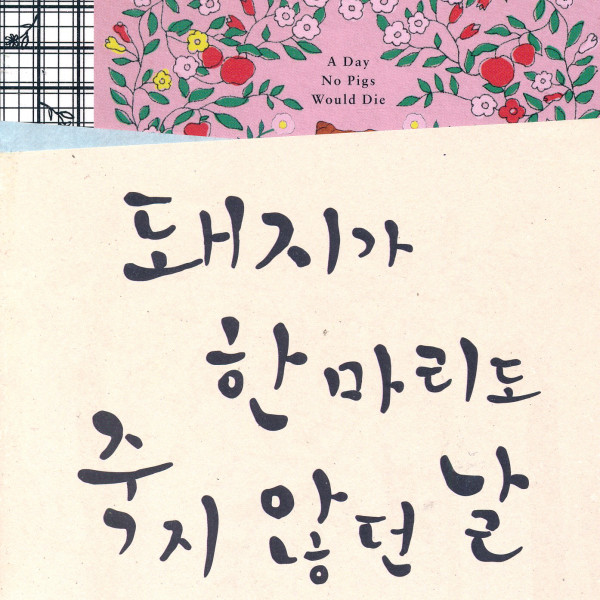 A Day
No Pigs
Would Die
돼지가
한 마리도
죽지 않던 날